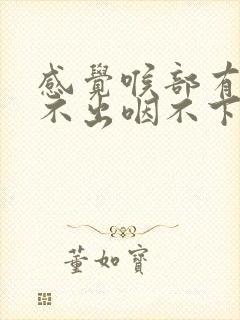 感覺喉部有
不出咽不下
董如寶